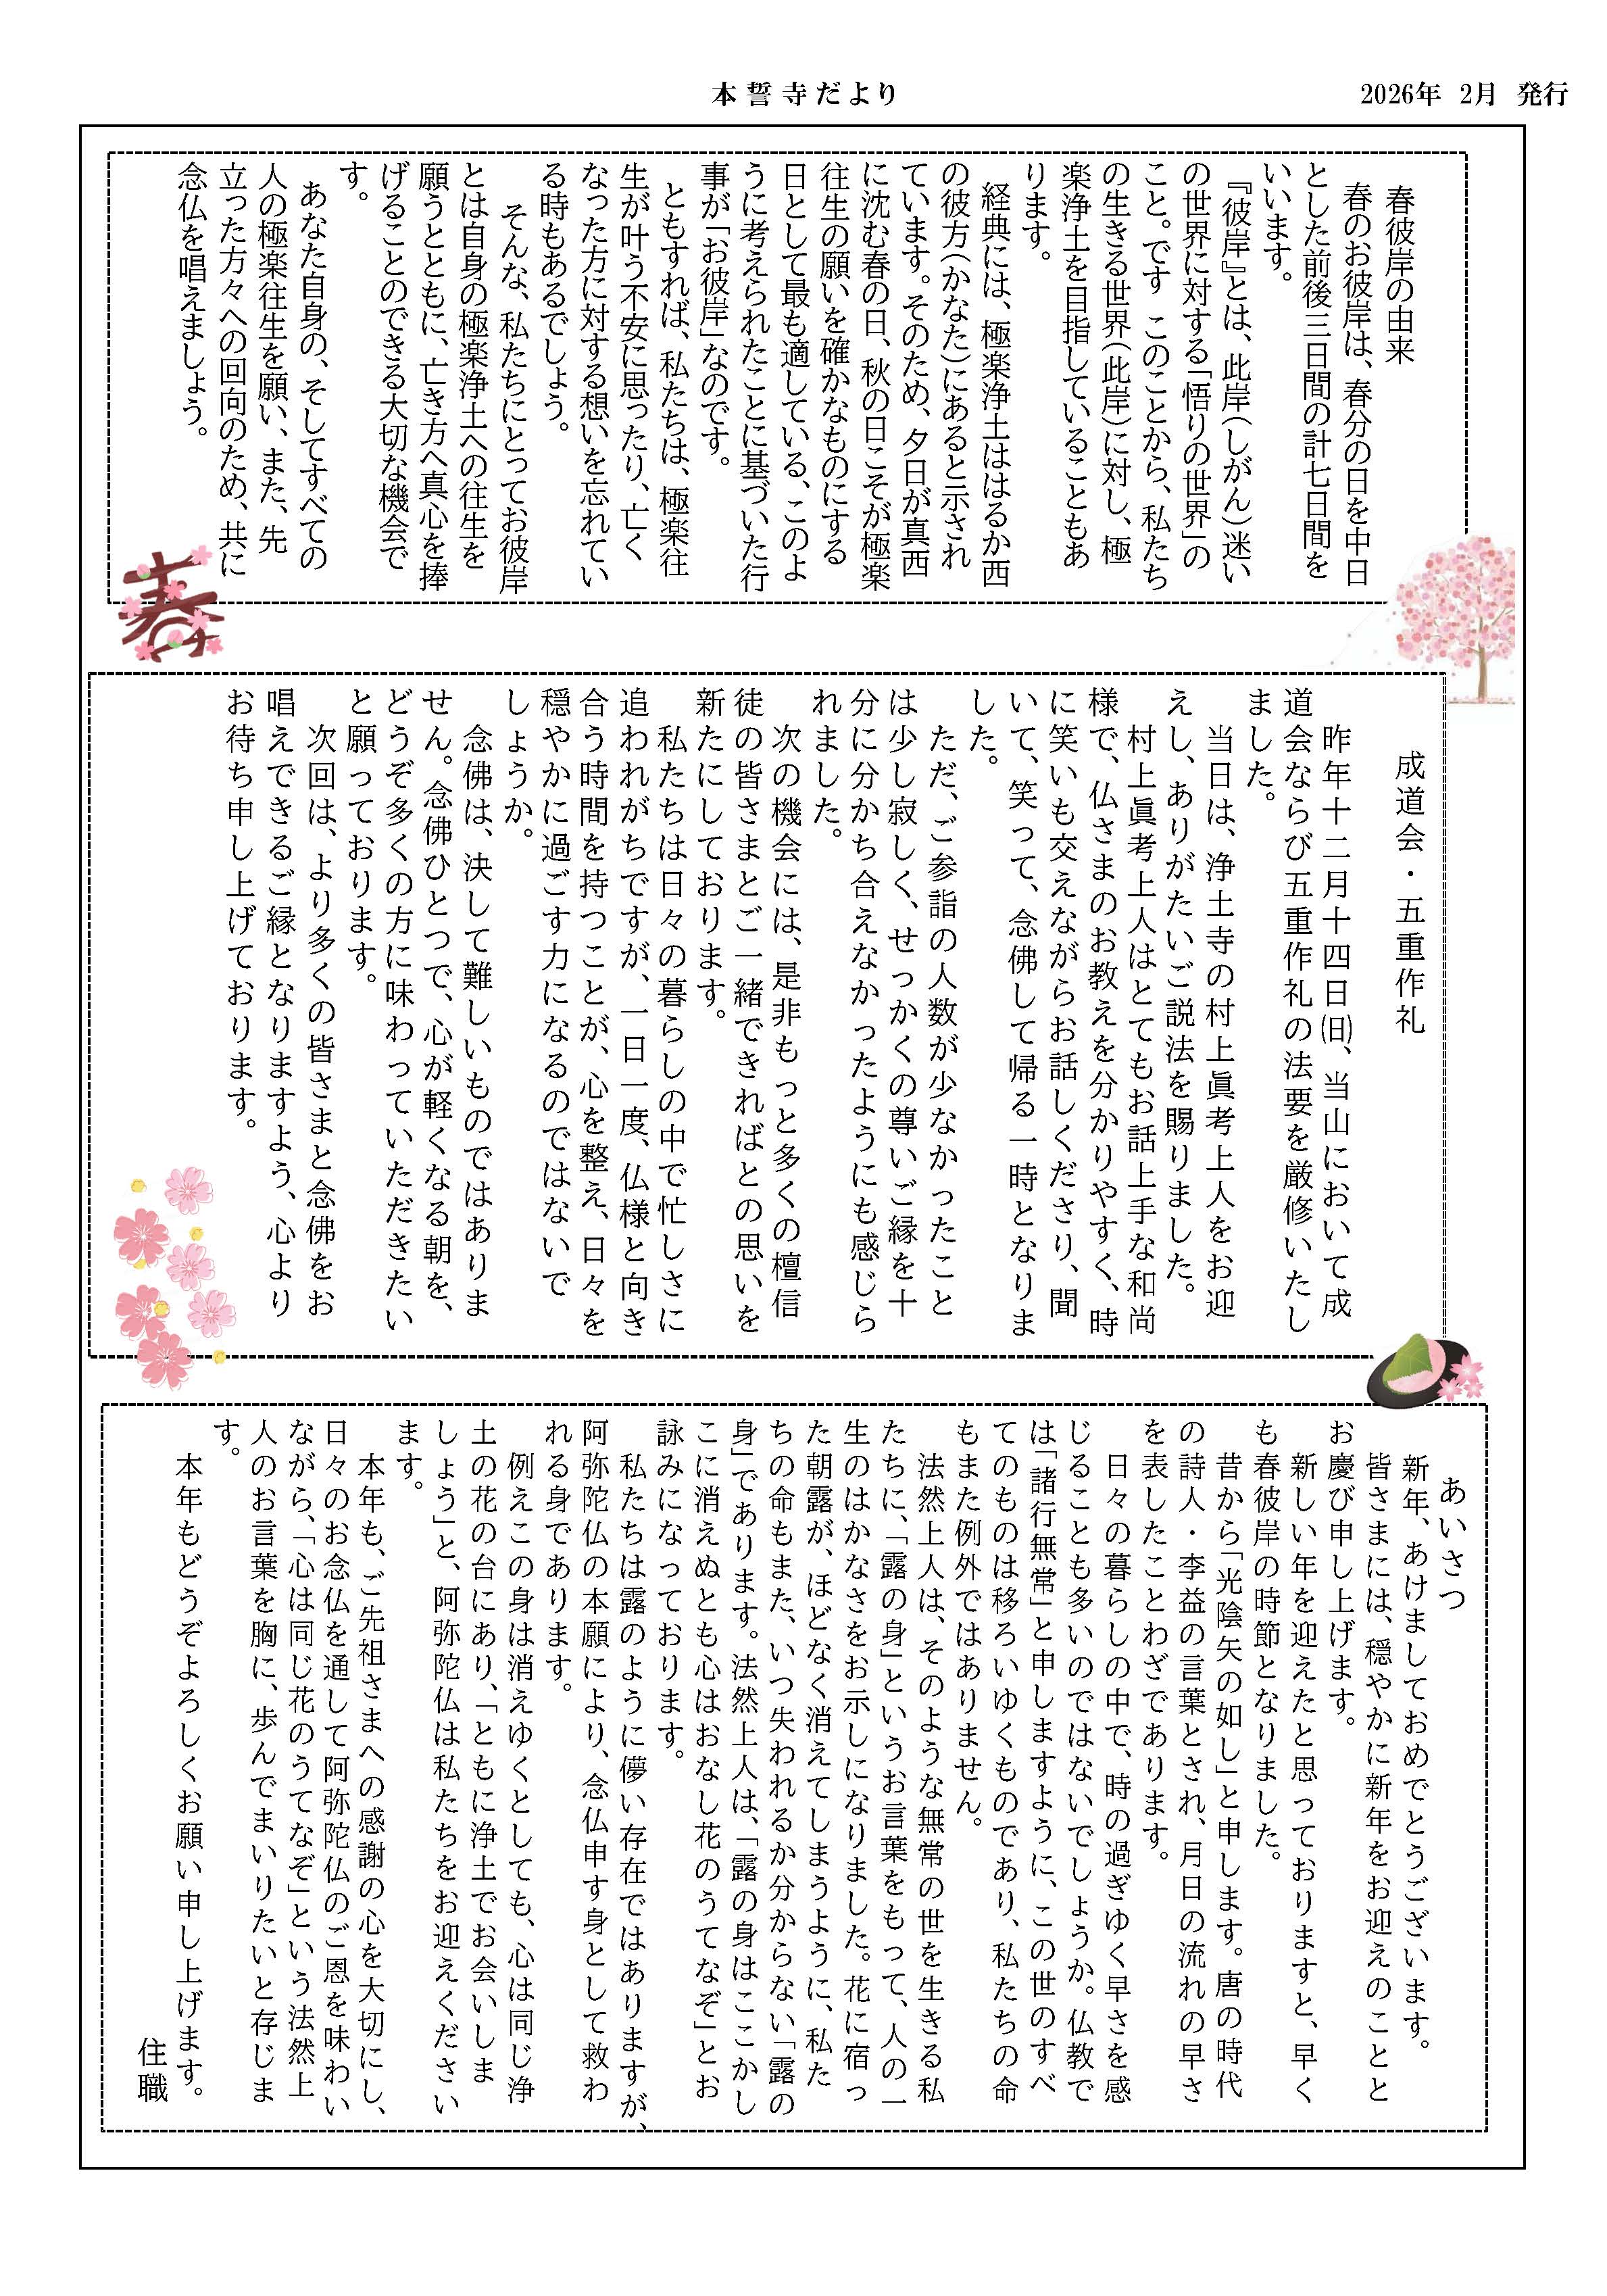 本誓寺だより
2026年 2月 発行
春彼岸の由来
春のお彼岸は、春分の日を中日
とした前後三日間の計七日間を
いいます。
『彼岸』とは、此岸(しがん)迷い
の世界に対する「悟りの世界」の
こと。です このことから、私たち
の生きる世界(此岸)に対し、極
楽浄土を目指していることもあ
ります。
経典には、極楽浄土ははるか西
の彼方(かなた)にあると示され
ています。そのため、夕日が真西
に沈む春の日、秋の日こそが極楽
往生の願いを確かなものにする
日として最も適している、このよ
うに考えられたことに基づいた行
事が「お彼岸」なのです。
ともすれば、私たちは、極楽往
生が叶う不安に思ったり、亡く
なった方に対する想いを忘れてい
る時もあるでしょう。
そんな、私たちにとってお彼岸
とは自身の極楽浄土への往生を
願うとともに、亡き方へ真心を捧
げることのできる大切な機会で
す。
あなた自身の、そしてすべての
人の極楽往生を願い、また、先
立った方々への回向のため、共に
念仏を唱えましょう。
春
成道会・五重作礼
昨年十二月十四日㈰、当山において成
道会ならび五重作礼の法要を厳修いたし
ました。
当日は、浄土寺の村上眞考上人をお迎
えし、ありがたいご説法を賜りました。
村上眞考上人はとてもお話上手な和尚
様で、仏さまのお教えを分かりやすく、時
に笑いも交えながらお話しくださり、聞
いて、笑って、念佛して帰る一時となりま
した。
ただ、ご参詣の人数が少なかったこと
は少し寂しく、せっかくの尊いご縁を十
分に分かち合えなかったようにも感じら
れました。
次の機会には、是非もっと多くの檀信
徒の皆さまとご一緒できればとの思いを
新たにしております。
私たちは日々の暮らしの中で忙しさに
追われがちですが、一日一度、仏様と向き
合う時間を持つことが、心を整え、日々を
穏やかに過ごす力になるのではないで
しょうか。
念佛は、決して難しいものではありま
せん。念佛ひとつで、心が軽くなる朝を、
どうぞ多くの方に味わっていただきたい
と願っております。
次回は、より多くの皆さまと念佛をお
唱えできるご縁となりますよう、心より
お待ち申し上げております。
あいさつ
新年、あけましておめでとうございます。
皆さまには、穏やかに新年をお迎えのことと
お慶び申し上げます。
新しい年を迎えたと思っておりますと、早く
も春彼岸の時節となりました。
昔から「光陰矢の如し」と申します。唐の時代
の詩人・李益の言葉とされ、月日の流れの早さ
を表したことわざであります。
日々の暮らしの中で、時の過ぎゆく早さを感
じることも多いのではないでしょうか。仏教で
は「諸行無常」と申しますように、この世のすべ
てのものは移ろいゆくものであり、私たちの命
もまた例外ではありません。
法然上人は、そのような無常の世を生きる私
たちに、「露の身」というお言葉をもって、人の一
生のはかなさをお示しになりました。花に宿っ
た朝露が、ほどなく消えてしまうように、私た
ちの命もまた、いつ失われるか分からない「露の
身」であります。法然上人は、「露の身はここかし
こに消えぬとも心はおなし花のうてなぞ」とお
詠みになっております。
私たちは露のように儚い存在ではありますが、
阿弥陀仏の本願により、念仏申す身として救わ
れる身であります。
例えこの身は消えゆくとしても、心は同じ浄
土の花の台にあり、「ともに浄土でお会いしま
しょう」と、阿弥陀仏は私たちをお迎えください
ます。
本年も、ご先祖さまへの感謝の心を大切にし、
日々のお念仏を通して阿弥陀仏のご恩を味わい
ながら、「心は同じ花のうてなぞ」という法然上
人のお言葉を胸に、歩んでまいりたいと存じま
す。
本年もどうぞよろしくお願い申し上げます。
住職